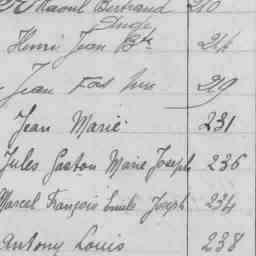 Raoul Bertrand 210
Henri Jean Bte 214
Jean 219
Jean Marie 231
Jules Gaston Marie Joseph 236
Marcel François Emile Joseph 234
Antony Louis 238